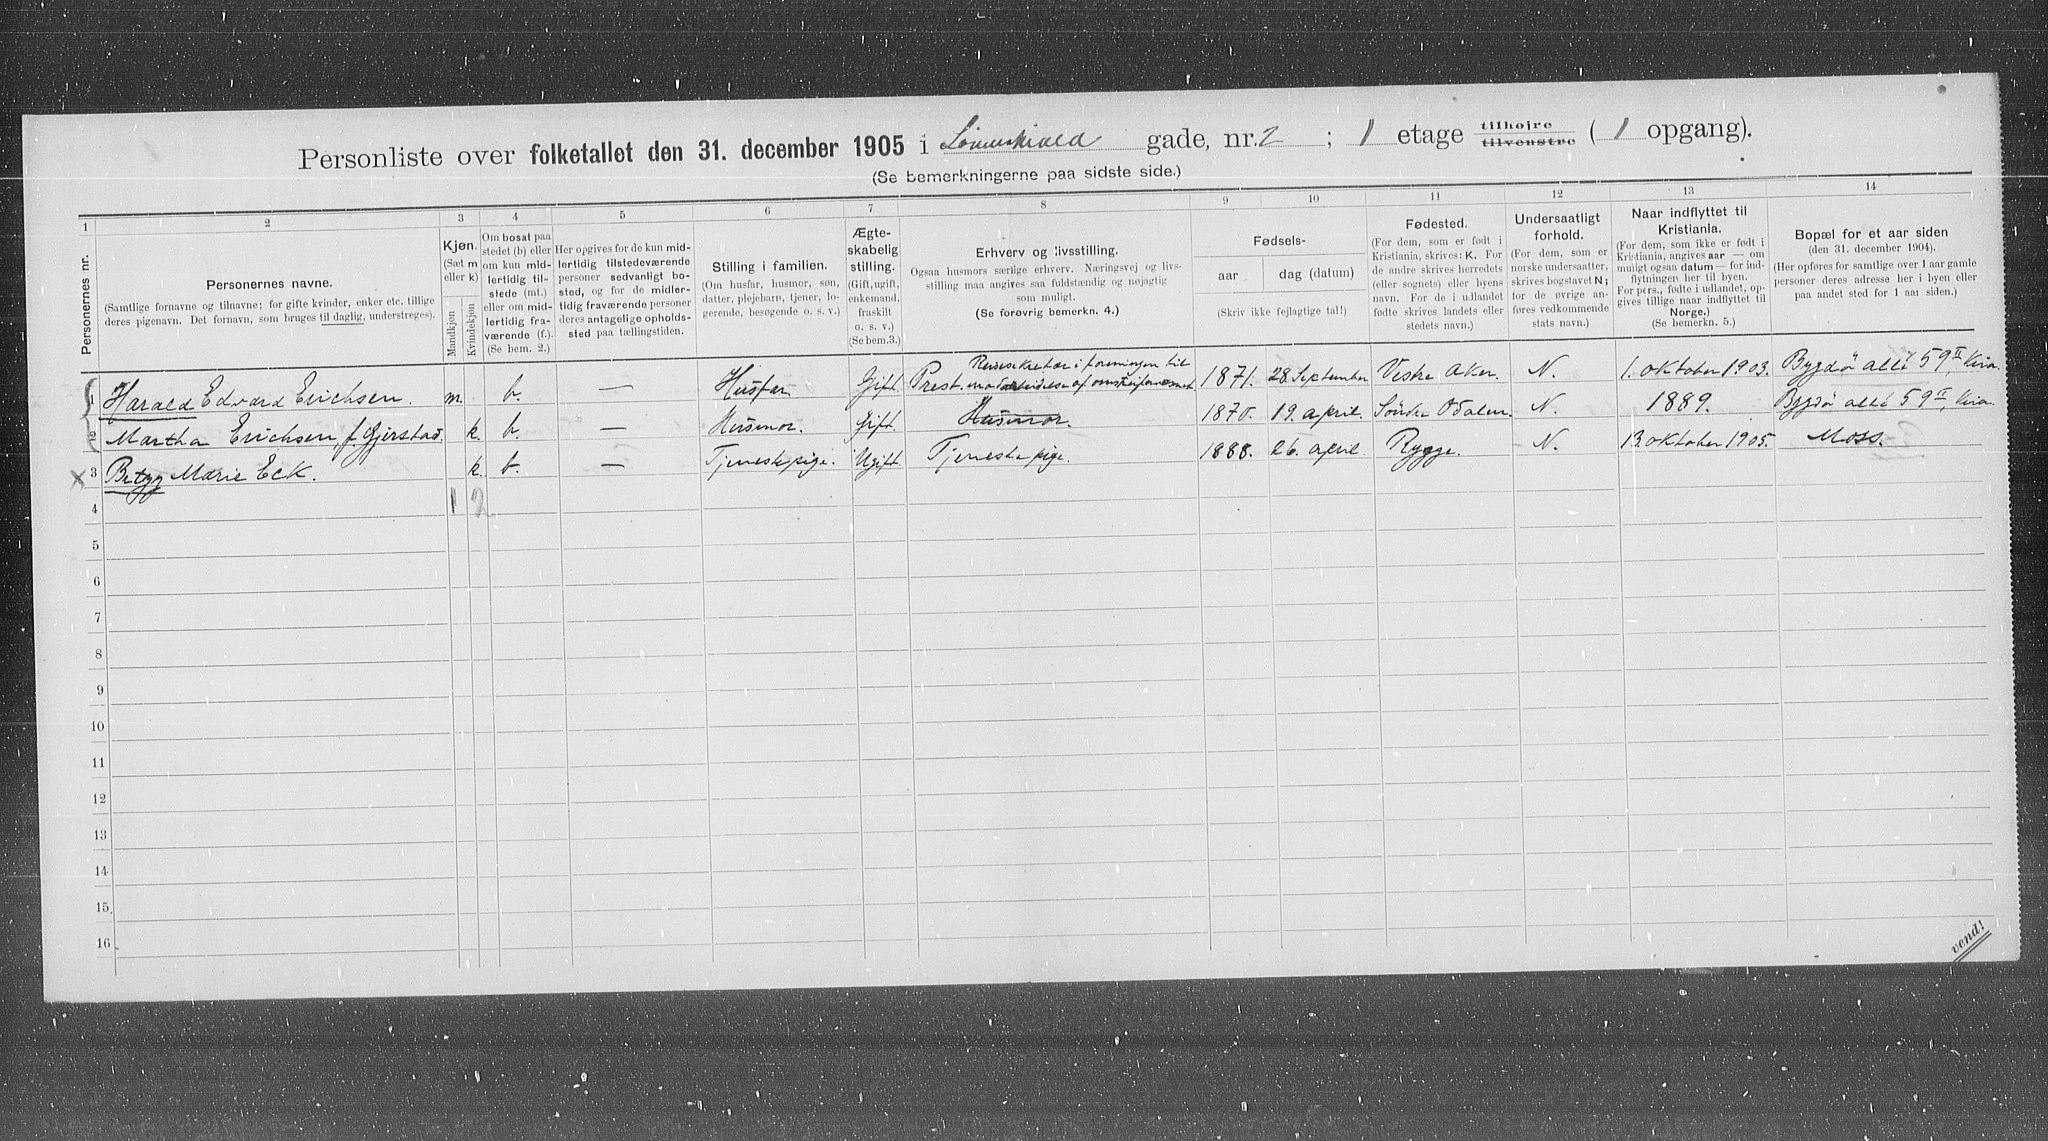 Personliste over folketallet den 31. december 1905 i Løvenskiold gade, nr. 2 ; 1 etage tilhøjre tilvenstre ( 1 opgang).
(Se bemerkningerne paa sidste side.)
1 2 3 4 5 6 7 8 9 10 11 12 13 14
Personernes nr.
Personernes navne.
(Samtlige fornavne og tilnavne; for gifte kvinder, enker etc. tillige
deres pigenavn. Det fornavn, som bruges til daglig, understreges).
Kjøn.
(Sæt m
eller k)
Mandkjøn
Kvindekjøn
Om bosat paa
stedet (b) eller
om kun mid-
lertidig til-
stede (mt.)
eller om mid-
lertidig fra-
værende (f.)
(Se bem. 2.)
Her opgives for de kun mid-
lertidig tilstedeværende
personer sedvanligt bo-
sted, og for de midler-
tidig fraværende personer
deres antagelige opholds-
sted paa tællingstiden.
Stilling i familien.
(Om husfar, husmor, søn,
datter, plejebarn, tjener, lo-
gerende, besøgende o. s. v.)
Ægte-
skabelig
stilling.
(Gift, ugift,
enkemand,
fraskilt
o. s. v.)
(Se bem.3.)
Erhverv og livsstilling.
Ogsaa husmors særlige erhverv. Næringsvej og livs-
stilling maa angives saa fuldstændig og nøjagtig
som muligt.
(Se forøvrig bemerkn. 4.)
Fødsels-
aar dag (datum)
(Skriv ikke fejlagtige tal!)
Fødested.
(For dem, som er født i
Kristiania, skrives: K. For
de andre skrives herredets
(eller sognets) eller byens
navn. For de i udlandet
fødte skrives landets eller
stedets navn.)
Undersaatligt
forhold.
(For dem, som er
norske undersaatter,
skrives bogstavet N;
for de øvrige an-
føres vedkommende
stats navn.)
Naar indflyttet til
Kristiania.
(For dem, som ikke er født i
Kristiania, angives aar — om
muligt ogsaa datum — for ind-
flytningen her til byen.
For pers., fødte i udlandet, op-
gives tillige naar indflyttet til
Norge.)
(Se bemerkn. 5.)
Bopæl for et aar siden
(den 31. december 1904)
(Her opføres for samtlige over 1 aar gamle
personer deres adresse her i byen eller
paa andet sted for 1 aar siden.)
1 Harald Edvard Erichsen. m. b. — Husfar Gift. Prest. Reisesekretær i foreningen til
modarbeidelse af omstreifervæsenet 1871. 28 September Vestre Aker. N. 1. oktober 1903. Bygdø allé 59 II, Kra.
2 Martha Erichsen, f. Gjerstad. k. b. — Husmor. Gift. Husmor. 1870. 19. april. Søndre Odalen. N. 1889. Bygdø allé 59 II, Kra.
x 3 Betzy Marie Eck. k. b. — Tjenestepige. Ugift. Tjenestepige. 1888. 26. april Rygge. N. 13 oktober 1905. Moss.
4 1 2
5
6
7
8
9
10
11
12
13
14
15
16
vend!